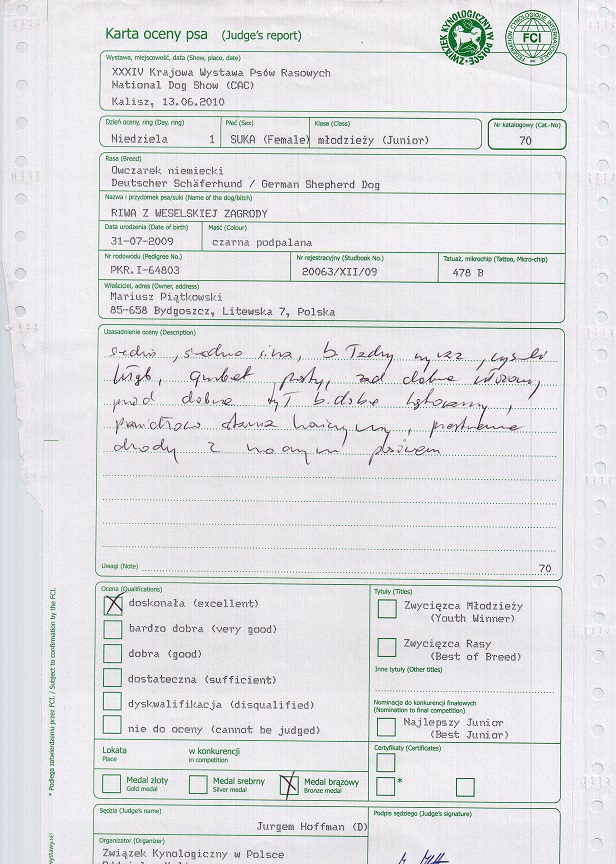 Karta oceny psa (Judge's report)
ZWIĄZEK KYNOLOGICZNY W POLSCE
FEDERATION CYNOLOGIQUE INTERNATIONALE
FCI
Wystawa, miejscowość, data (Show, place, date)
XXXIV Krajowa Wystawa Psów Rasowych
National Dog Show (CAC)
Kalisz, 13.06.2010
Dzień oceny, ring (Day, ring) Płeć (Sex) Klasa (Class) Nr katalogowy (Cat.-No)
Niedziela 1 SUKA (Female) młodzieży (Junior) 70
Rasa (Breed)
Owczarek niemiecki
Deutscher Schäferhund / German Shepherd Dog
Nazwa i przydomek psa/suki (Name of the dog/bitch)
RIWA Z WESELSKIEJ ZAGRODY
Data urodzenia (Date of birth) Maść (Colour)
31-07-2009 czarna podpalana
Nr rodowodu (Pedigree No.) Nr rejestracyjny (Studbook No.) Tatuaż, mikrochip (Tattoo, Micro-chip)
PKR.I-64803 20063/XII/09 478 B
Właściciel, adres (Owner, address)
Mariusz Piątkowski
85-658 Bydgoszcz, Litewska 7, Polska
Uzasadnienie oceny (Description)
średnio, średnio silna, b. ładny wyraz, wysoki
kłąb, grzbiet prosty, zad dobrze ułożony
przód dobrze tył b. dobrze kątowany,
prawidłowo
chody z mocnym
Uwagi (Note) 70
Ocena (Qualifications) Tytuły (Titles)
X doskonała (excellent) Zwycięzca Młodzieży
(Youth Winner)
bardzo dobra (very good)
dobra (good) Zwycięzca Rasy
(Best of Breed)
dostateczna (sufficient) Inne tytuły (Other titles)
dyskwalifikacja (disqualified) Nominacja do konkurencji finałowych
(Nomination to final competition)
nie do oceny (cannot be judged) Najlepszy Junior
(Best Junior)
Lokata w konkurencji Certyfikaty (Certificates)
Place in competition
Medal złoty Medal srebrny X Medal brązowy *
Gold medal Silver medal Bronze medal
Sędzia (Judge's name) Podpis sędziego (Judge's signature)
Jurgem Hoffman (D)
Organizator (Organizer)
Związek Kynologiczny w Polsce
* Podlega zatwierdzeniu przez FCI. / Subject to confirmation by the FCI.